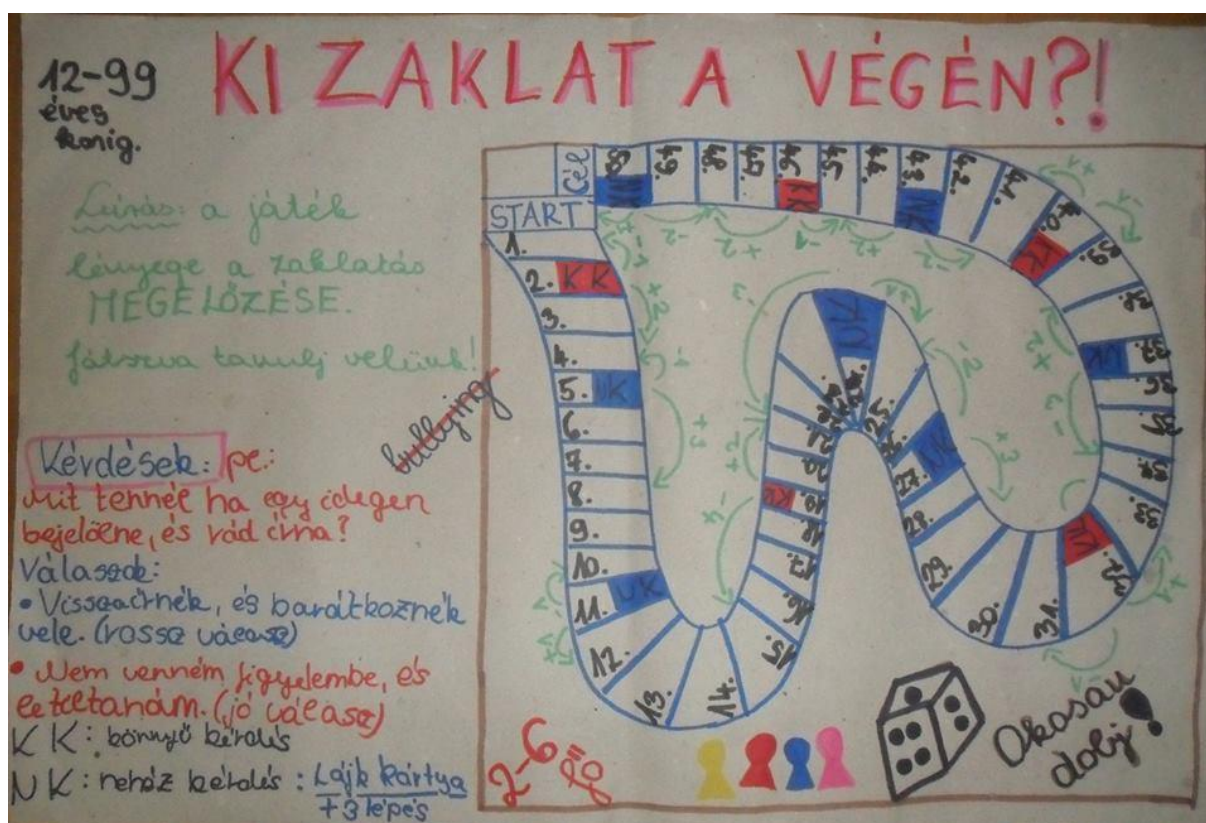 KI ZAKLAT A VÉGÉN?!
12-99
éves
korig.
Leírás: a játék
lényege a zaklatás
MEGELŐZÉSE.
játszva tanulj velünk!
bullying
Kérdések: pe.:
Mit tennél ha egy idegen
bejelölne, és rád írna?
Válaszok:
• Visszaírnék, és barátkoznék
vele. (rossz válasz)
• Nem venném figyelembe, és
letiltanám. (jó válasz)
K K: könnyű kérdés
N K: nehéz kérdés: Lájk kártya
+3 lépés
START
Cél
1.
2. K K
3.
4.
5. NK
6.
7.
8.
9.
10.
11. NK
12.
13.
14.
15.
16.
17.
18.
19. KK
20.
21.
25.
27. NK
28.
29.
30.
31.
32. KK
33.
34.
35.
36.
37. NK
38.
39.
40. KK
41.
42.
43. NK
44.
45.
46. KK
47.
48.
49.
50. NK
2-6 fő
Okosan
dobj!